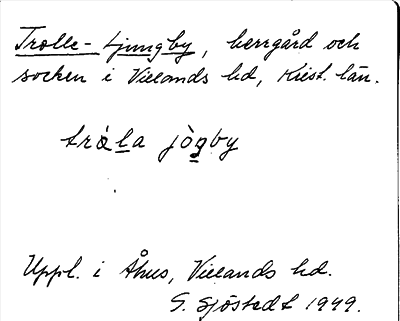 Trolle-Ljungby, herrgård och
socken i Villands hd, Krist. län.
tràla jògby
Uppl. i Åhus, Villands hd.
S. Sjöstedt 1949.